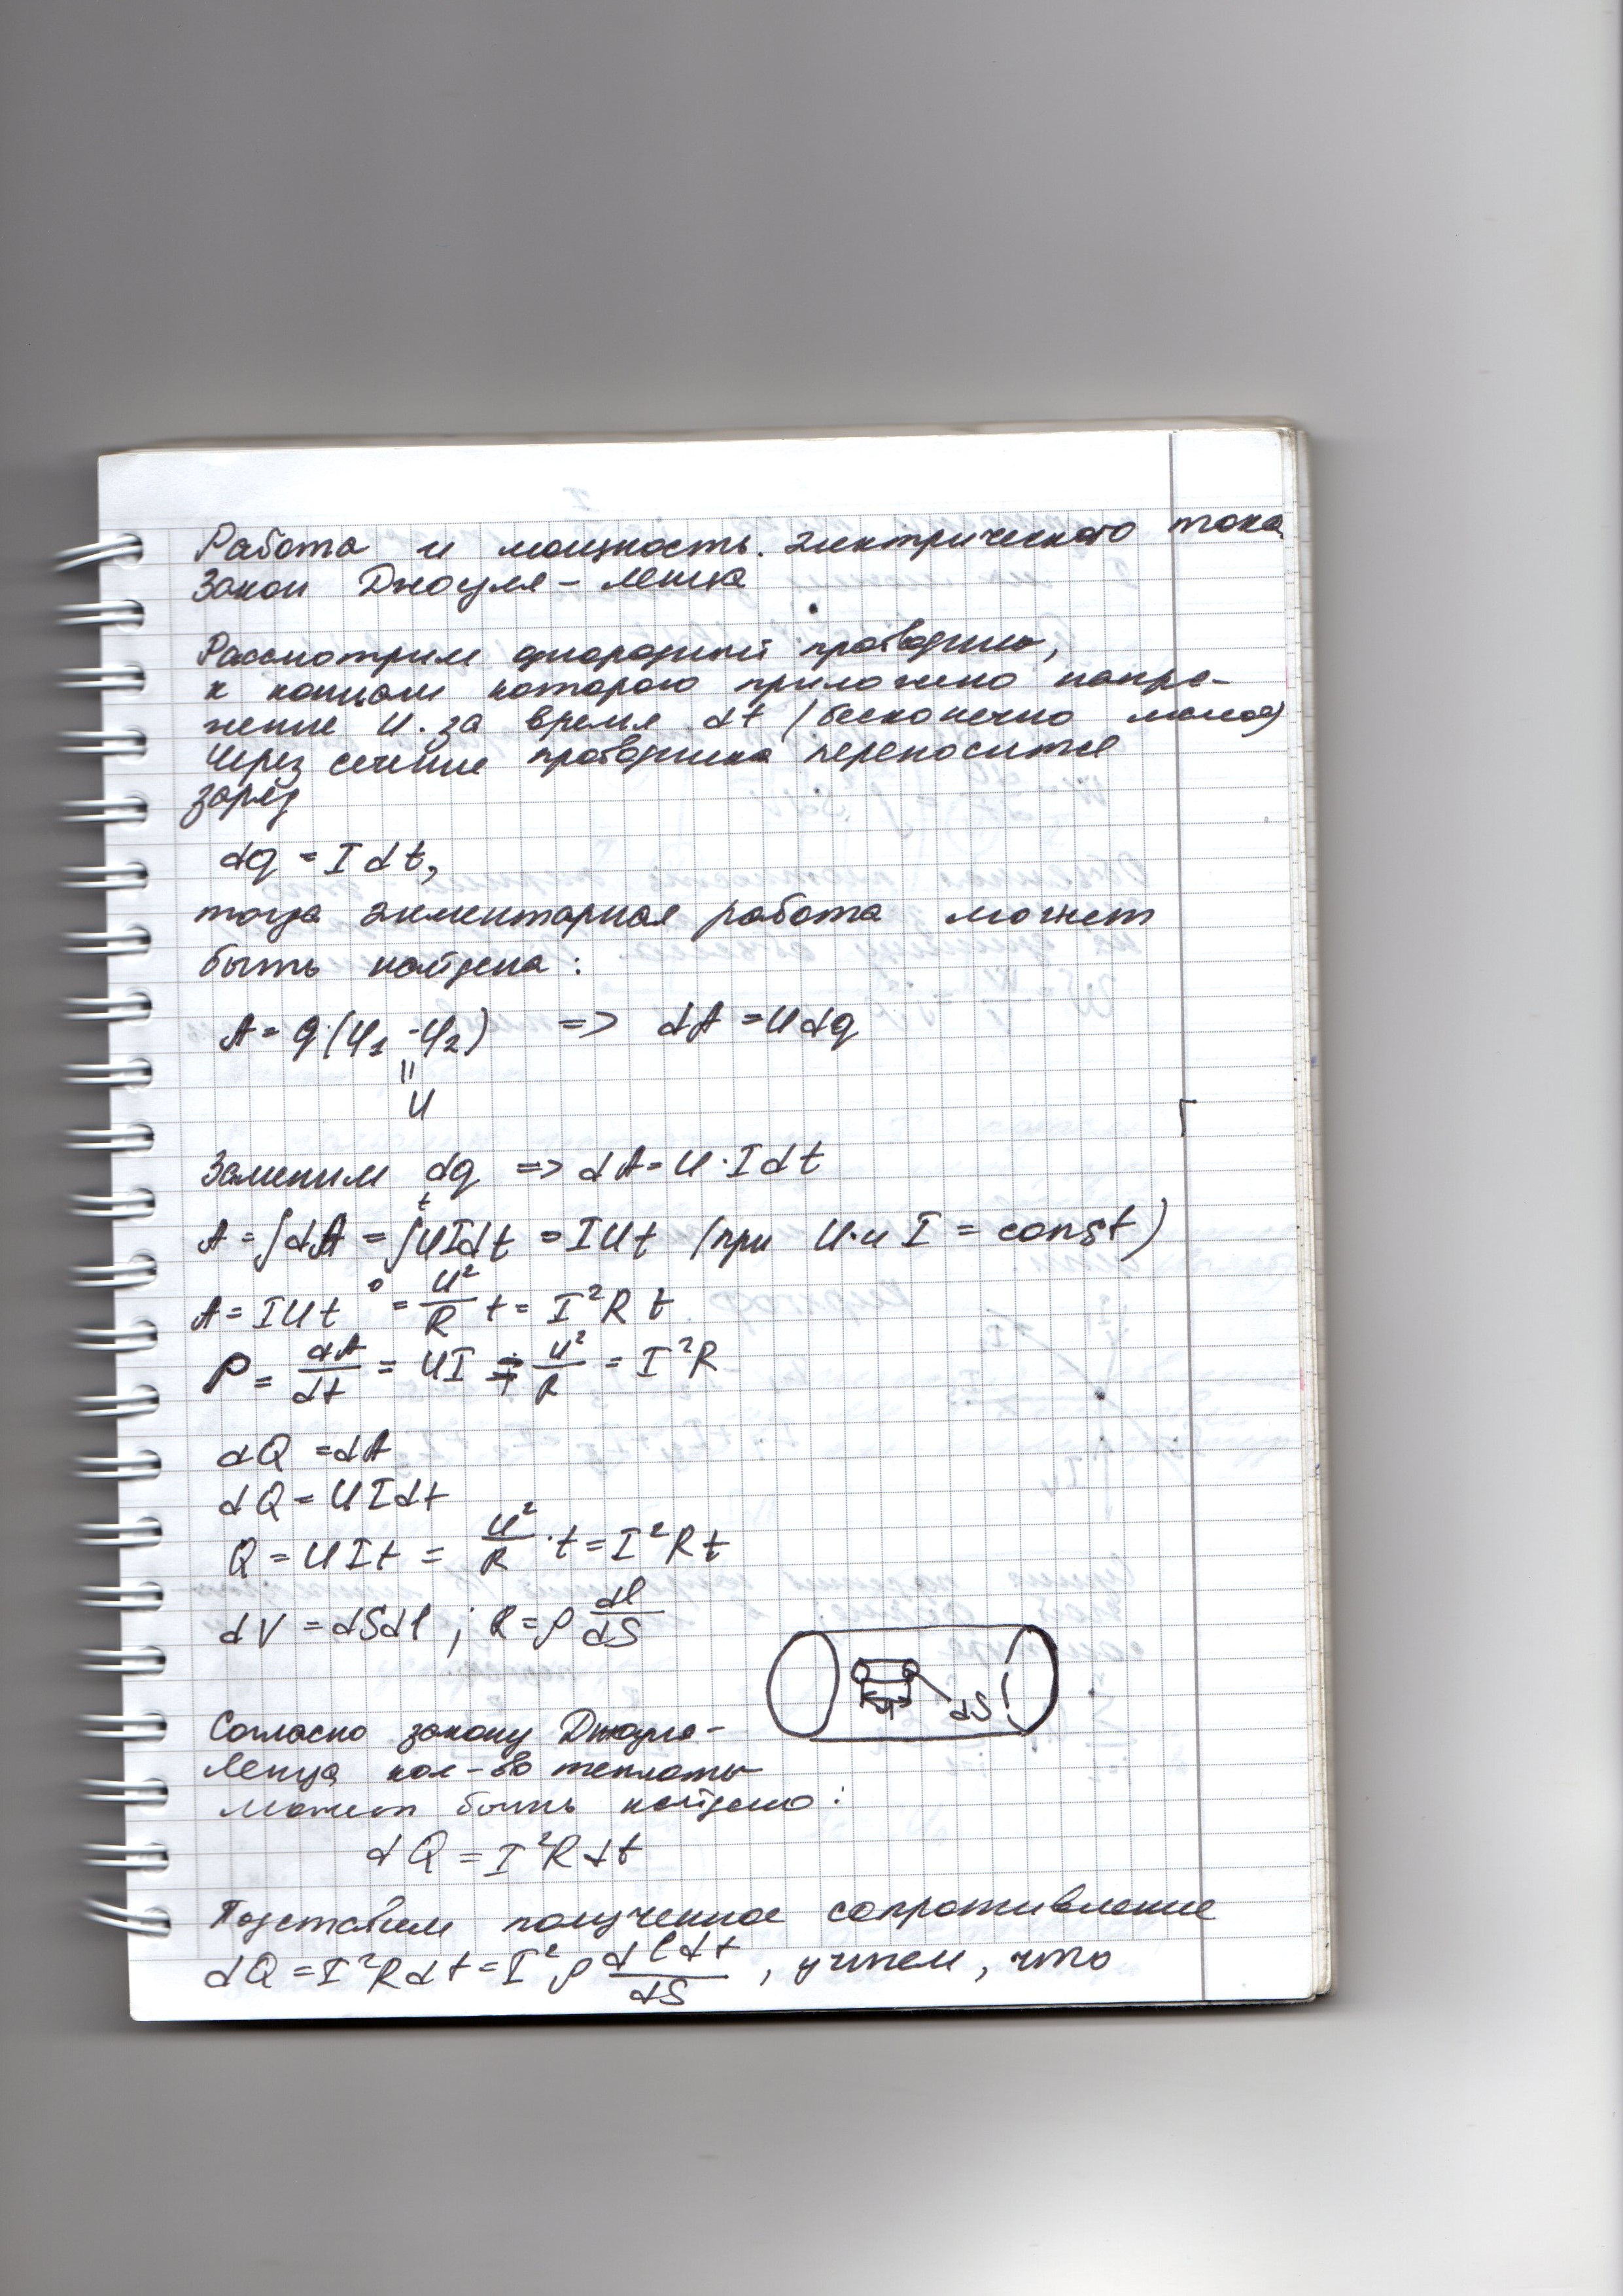 Работа и мощность электрического тока.
Закон Джоуля - Ленца
Рассмотрим однородный проводник,
к концам которого приложено напря-
жение U. за время dt (бесконечно малое)
через сечение проводника переносится
заряд
dq = I dt,
тогда элементарная работа может
быть найдена:
A = q(φ₁ - φ₂) => dA = U dq
||
U
Заменим dq => dA = U · I dt
A = ∫dA = ∫₀ᵗ UIdt = IUt (при U и I = const)
A = IUt = U²/R t = I²R t
P = dA/dt = UI = U²/R = I²R
dQ = dA
dQ = UIdt
Q = UIt = U²/R · t = I²Rt
dV = dSdl ; R = ρ dl/dS
dl dS
Согласно закону Джоуля-
Ленца кол-во теплоты
может быть найдено:
dQ = I²Rdt
Подставим полученное сопротивление
dQ = I²Rdt = I²ρ dldt/dS , учтем, что